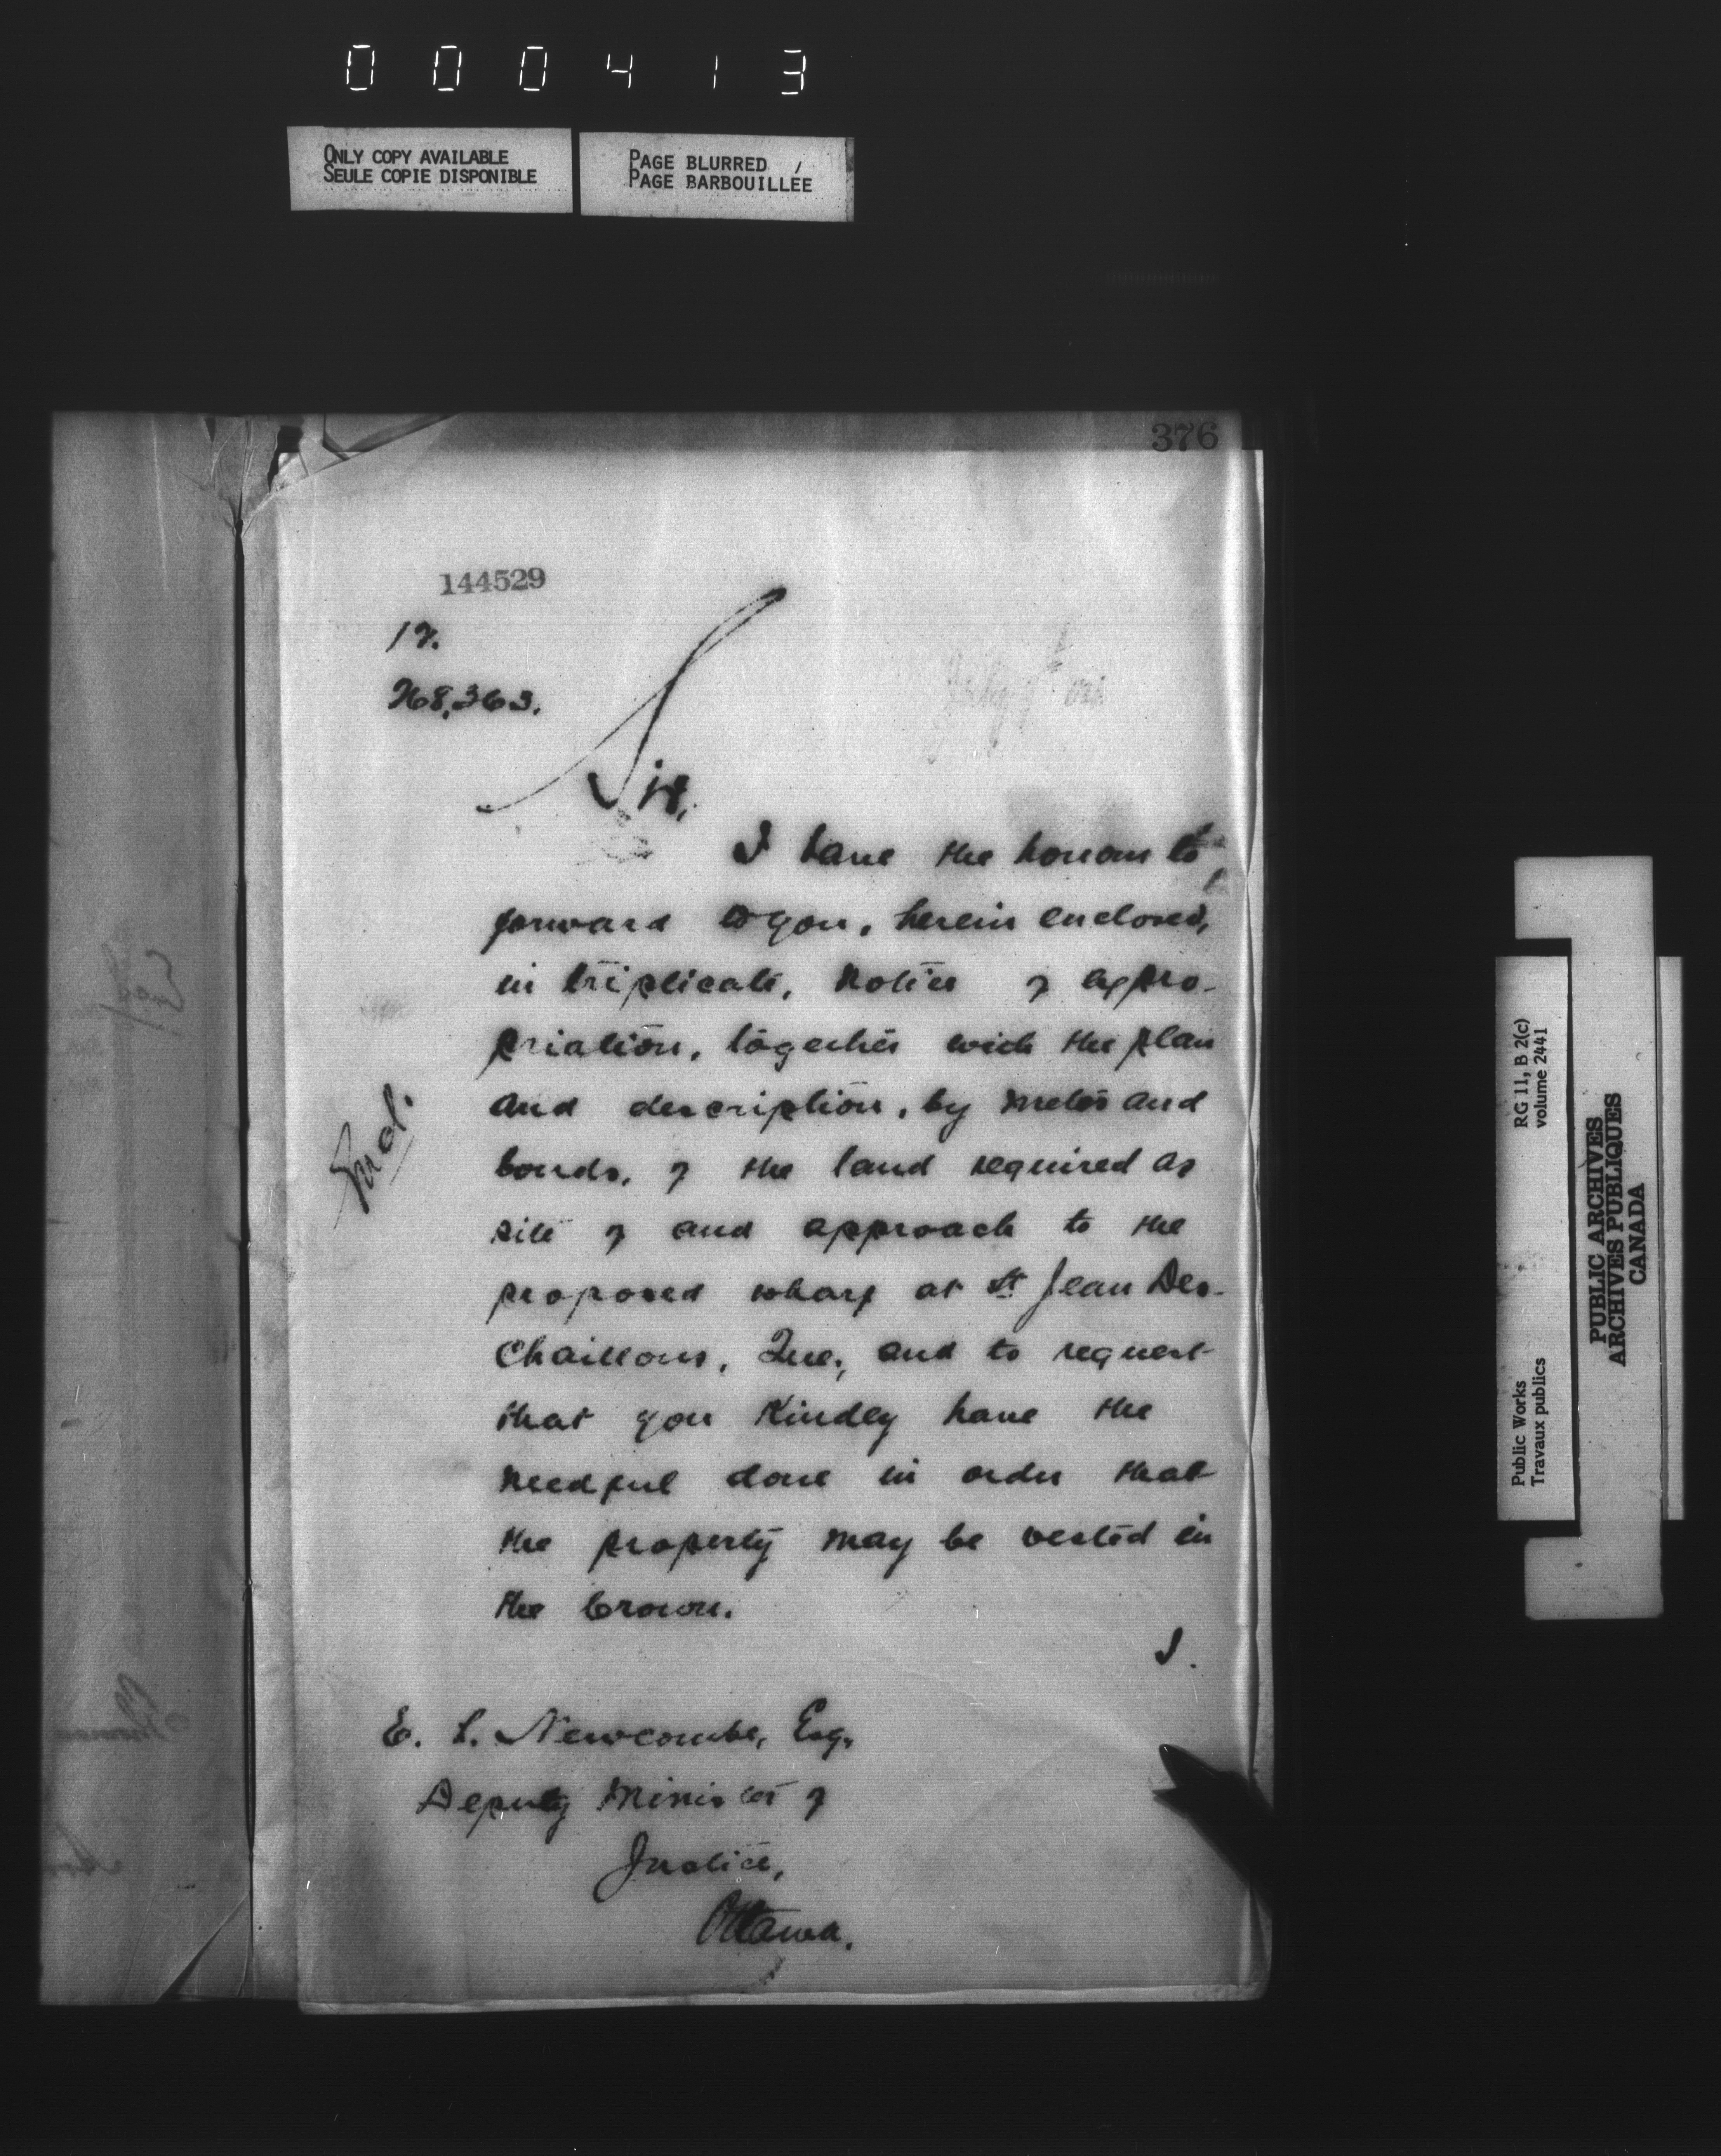 000413
ONLY COPY AVAILABLE
SEULE COPIE DISPONIBLE
PAGE BLURRED
PAGE BARBOUILLÉE
376
144529
Sir,
I have the honour to
forward to you, herein enclosed,
in triplicate, notice of expro-
priation, together with the plan
and description, by metes and
bonds, of the land required as
site of and approach to the
proposed wharf at St Jean Des-
Chaillons, Que., and to request
that you kindly have the
needful done in order that
the property may be vested in
the Crown.
I.
Encl.
E. L. Newcombe, Esq.
Deputy Minister of
Justice,
Ottawa.
RG 11, B 2(c)
volume 2441
Public Works
Travaux publics
PUBLIC ARCHIVES
ARCHIVES PUBLIQUES
CANADA